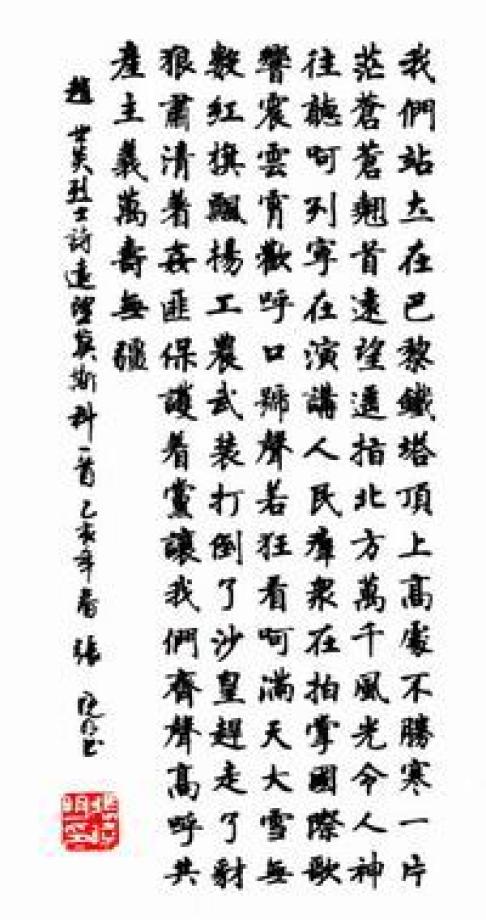 我們站立在巴黎鐵塔頂上高處不勝寒一片
茫蒼蒼翹首遠望遙指北方萬千風光令人神
往聽呵列寧在演講人民群衆在拍掌國際歌
響震雲霄歡呼口號聲若狂看呵滿天大雪無
數紅旗飄揚工農武装打倒了沙皇趕走了豺
狼肅清着姦匪保護着黨讓我們齊聲高呼共
產主義萬壽無疆
趙世炎烈士詩遠望莫斯科一首己亥年春張